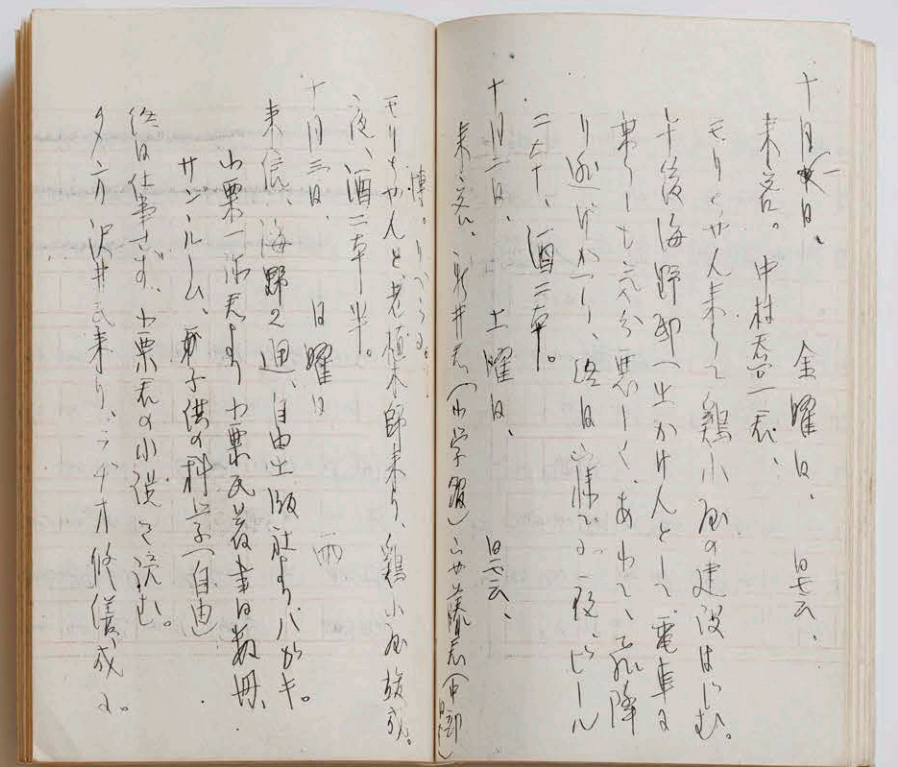 十月一日、金曜日、曇、
来客。中村君、
モリちゃん来りて鶏小屋の建設はじむ。
午後海野邸へ出かけんとして、電車に
乗りしも気分悪しく、あわてて飛降
り逃げかへり、終日臥床です。夜、ビール
二本、酒二本。
十月二日、土曜日、曇、
来客、新井君(小学館)
モリちゃんと老植木師来り、鶏小屋
夜、酒二本半。
十月三日、日曜日 雨
来信、海野2通、自由出版社よりハガキ。
小栗 君より小栗氏著書 数冊、
サンルーム、子供の科学(自由)
終日仕事せず、小栗君の小説を読む。
夕方沢井氏来り、ラヂオ修繕成る。